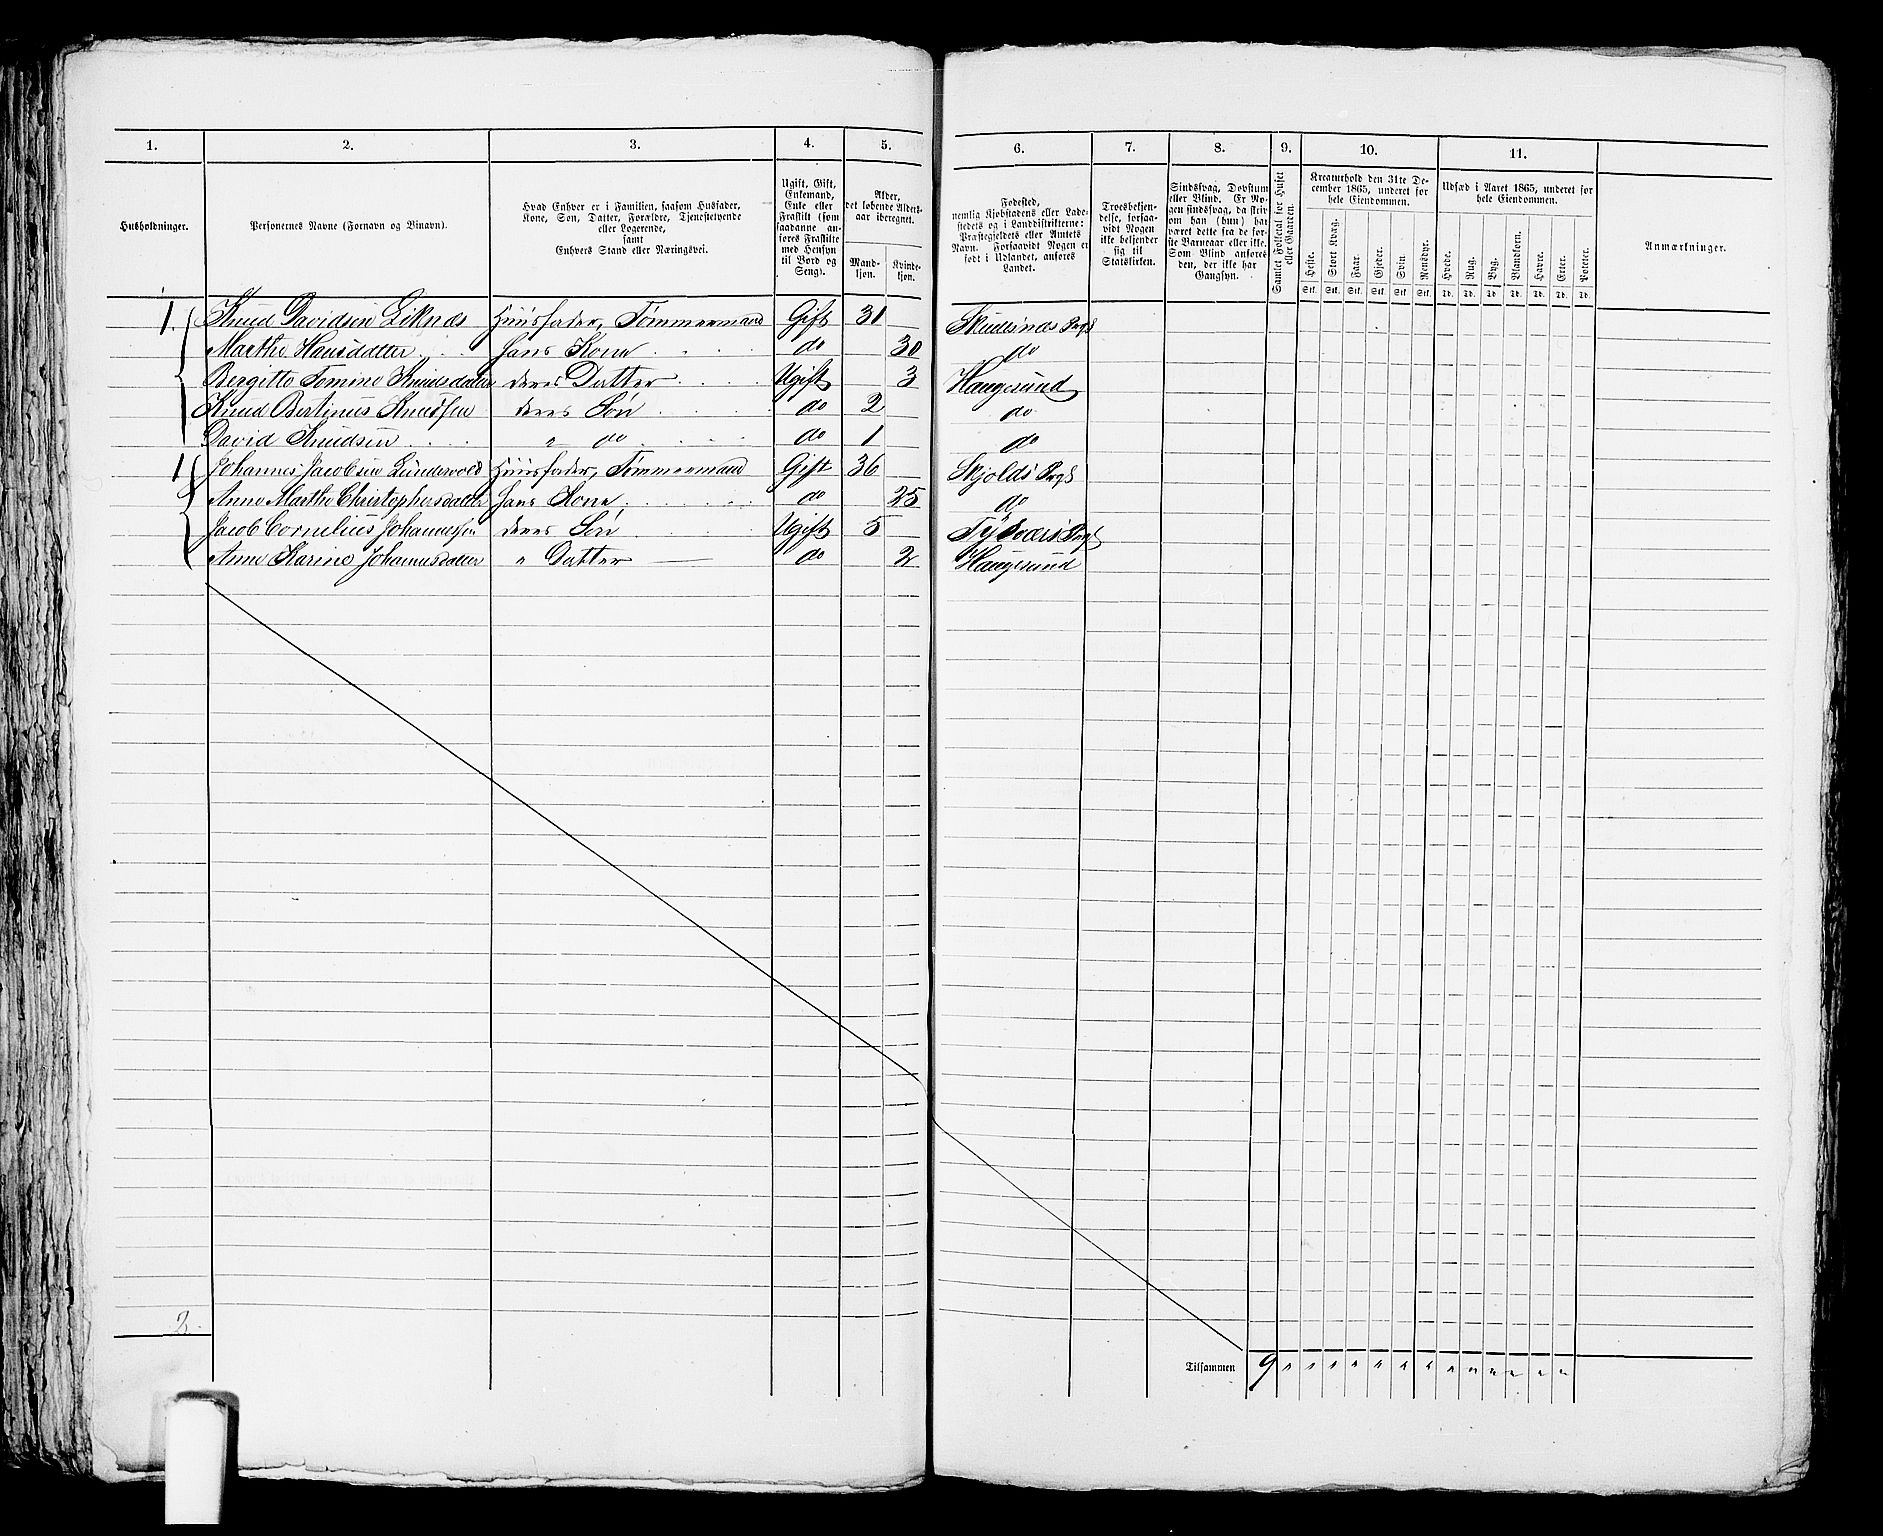 1. 2. 3. 4. 5. 6. 7. 8. 9. 10. 11.
Husholdninger.
Personernes Navne (Fornavn og Binavn).
Hvad Enhver er i Familien, saasom Husfader,
Kone, Søn, Datter, Forældre, Tjenestetyende
eller Logerende,
samt
Enhvers Stand eller Næringsvei.
Ugift, Gift,
Enkemand,
Enke eller
Fraskilt (som
saadanne an-
føres Fraskilte
med Hensyn
til Bord og
Seng).
Alder,
det løbende Alders-
aar iberegnet.
Mand-
kjøn.
Kvinde-
kjøn.
Fødested,
nemlig Kjøbstadens eller Lade-
stedets og i Landdistrikterne:
Præstegjeldets eller Amtets
Navn. Forsaavidt Nogen er
født i Udlandet, anføres
Landet.
Troesbekjen-
delse, forsaa-
vidt Nogen
ikke bekjender
sig til
Statskirken.
Sindssvag, Døvstum
eller Blind. Er No-
gen sindssvag, da skriv
om han (hun) har
været dette fra de før-
ste Barneaar eller ikke.
Som Blind anføres
den, der ikke har
Gangsyn.
Samlet Folketal for Huset
eller Gaarden.
Kreaturhold den 31te De-
cember 1865, underet for
hele Eiendommen.
Heste. Stort Kvæg. Faar. Gjeder. Svin. Rensdyr.
Stk. Stk. Stk. Stk. Stk. Stk.
Udsæd i Aaret 1865, underet for
hele Eiendommen.
Hvede. Rug. Byg. Blandkorn. Havre. Erter. Poteter.
Td. Td. Td. Td. Td. Td. Td.
Anmærkninger.
1. Knud Davidsen Liknæs Huusfader, Tømmermand Gift 31 Skudesnæs Prgd
Marthe Hansdatter hans Kone do 30 do
Bergitte Tomine Knudsdatter deres Datter Ugift 3 Haugesund
Knud Bertinus Knudsen deres Søn do 2 do
David Knudsen " do do 1 do
1 Johannes Jacobsen Lundevold Huusfader, Tømmermand Gift 36 Skjolds Prgd
Anne Marthe Christophersdatter hans Kone do 25 do
Jacob Cornelius Johannessen deres Søn Ugift 5 Tysvær Prgd
Anne Karine Johannesdatter " Datter do 2 Haugesund
2.
Tilsammen 9 " " " " " " " " " " " "